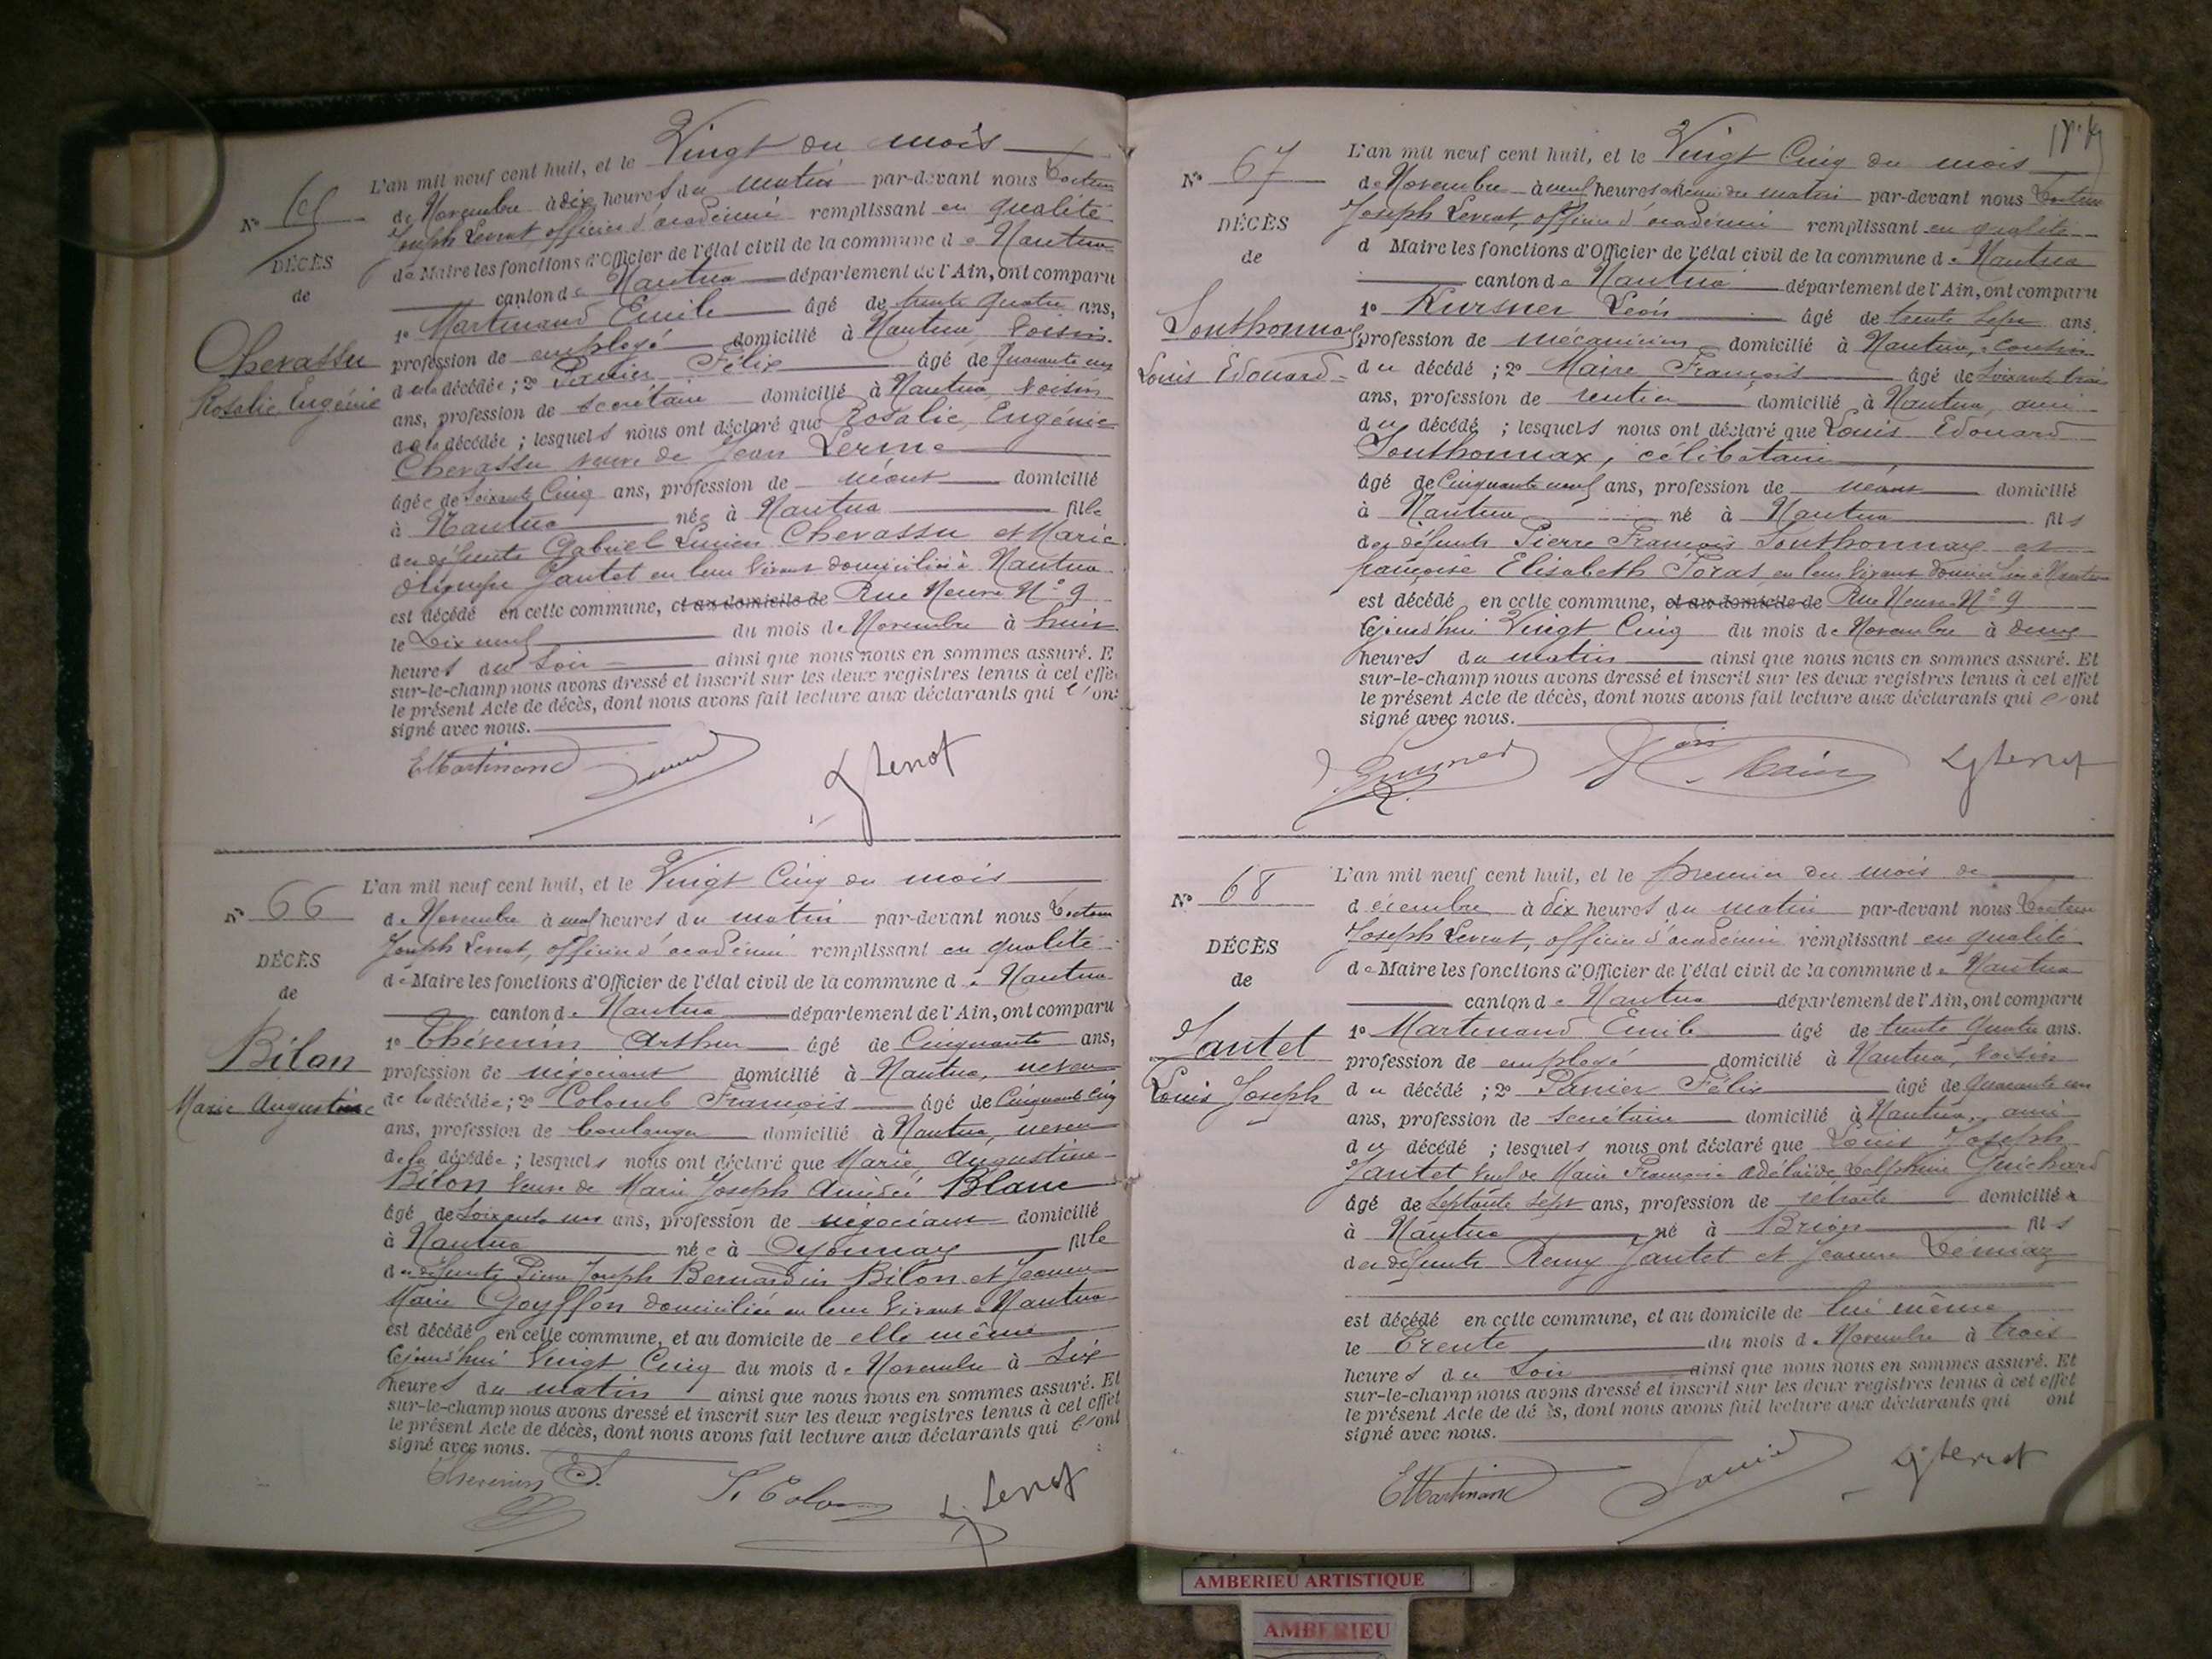 L'an mil neuf cent huit, et le Vingt du mois
N° 65
de Novembre à dix heures du matin par-devant nous Docteur
Joseph Levrat officier d'académie remplissant en qualité
DÉCÈS
de Maire les fonctions d'Officier de l'état civil de la commune de Nantua
de
canton de Nantua département de l'Ain, ont comparu
1° Martinand Emile âgé de trente quatre ans,
Chevassu
profession de employé domicilié à Nantua, voisin
Rosalie Eugénie
de la décédée ; 2° Panier Félix âgé de quarante un
ans, profession de secrétaire domicilié à Nantua, voisin
de la décédée ; lesquels nous ont déclaré que Rosalie, Eugénie
Chevassu veuve de Jean Lerme
âgée de soixante cinq ans, profession de néant domicilié
à Nantua née à Nantua fille
des défunts Gabriel Lucien Chevassu et Marie
Olympe Jantet en leur vivant domiciliés à Nantua
est décédé en cette commune, et au domicile de Rue Neuve N° 9
le Dix neuf du mois de Novembre à huit
heures du soir ainsi que nous nous en sommes assuré. E
sur-le-champ nous avons dressé et inscrit sur les deux registres tenus à cet effe
le présent Acte de décès, dont nous avons fait lecture aux déclarants qui l'ont
signé avec nous.
EMartinand
L'an mil neuf cent huit, et le Vingt Cinq du mois
N° 66
de Novembre à neuf heures du matin par-devant nous Docteur
Joseph Levrat, officier d'académie remplissant en qualité
DÉCÈS
de Maire les fonctions d'Officier de l'état civil de la commune de Nantua
de
canton de Nantua département de l'Ain, ont comparu
Bilon
1° Thévenin Arthur âgé de Cinquante ans,
profession de négociant domicilié à Nantua, neveu
Marie Augustine
de la décédée ; 2° Colomb François âgé de Cinquante cinq
ans, profession de boulanger domicilié à Nantua, neveu
de la décédée ; lesquels nous ont déclaré que Marie, Augustine
Bilon veuve de Marie Joseph Amédée Blanc
âgé de soixante un ans, profession de négociant domicilié
à Nantua née à Oyonnax fille
des défunts Pierre Joseph Bernardin Bilon et Jeanne
Marie Goyffon domiciliés en leur vivant à Nantua
est décédé en cette commune, et au domicile de elle même
cejourd'hui Vingt Cinq du mois de Novembre à Six
heures du matin ainsi que nous nous en sommes assuré. Et
sur-le-champ nous avons dressé et inscrit sur les deux registres tenus à cet effet
le présent Acte de décès, dont nous avons fait lecture aux déclarants qui l'ont
signé avec nous.
L'an mil neuf cent huit, et le Vingt Cinq du mois
N° 67
de Novembre à neuf heures et demie du matin par-devant nous Docteur
Joseph Levrat, officier d'académie remplissant en qualité
DÉCÈS
d Maire les fonctions d'Officier de l'état civil de la commune de Nantua
de
canton de Nantua département de l'Ain, ont comparu
Southonnax
1° Kursner Léon âgé de trente sept ans.
profession de mécanicien domicilié à Nantua, cousin
Louis Edouard
du décédé ; 2° Maire François âgé de soixante trois
ans, profession de rentier domicilié à Nantua, ami
du décédé ; lesquels nous ont déclaré que Louis Edouard
Southonnax, célibataire
âgé de Cinquante neuf ans, profession de néant domicilié
à Nantua né à Nantua fils
des défunts Pierre François Southonnax et
françoise Elisabeth Foras en leur vivant domiciliés à Nantua
est décédé en cette commune, et au domicile de Rue Neuve N° 9
cejourd'hui Vingt Cinq du mois de Novembre à deux
heures du matin ainsi que nous nous en sommes assuré. Et
sur-le-champ nous avons dressé et inscrit sur les deux registres tenus à cet effet
le présent Acte de décès, dont nous avons fait lecture aux déclarants qui l'ont
signé avec nous.
L'an mil neuf cent huit, et le premier du mois de
N° 68
décembre à dix heures du matin par-devant nous Docteur
Joseph Levrat, officier d'académie remplissant en qualité
DÉCÈS
de Maire les fonctions d'Officier de l'état civil de la commune de Nantua
de
canton de Nantua département de l'Ain, ont comparu
Jantet
1° Martinand Emile âgé de trente quatre ans.
profession de employé domicilié à Nantua, voisin
Louis Joseph
du décédé ; 2° Panier Félix âgé de quarante un
ans, profession de secrétaire domicilié à Nantua, ami
du décédé ; lesquels nous ont déclaré que Louis Joseph
Jantet veuf de Marie Françoise Adélaïde Delphine Guichard
âgé de septante sept ans, profession de retraité domicilié
à Nantua né à Brion fils
des défunts Remy Jantet et Jeanne
est décédé en cette commune, et au domicile de lui même
le Trente du mois de Novembre à trois
heures du soir ainsi que nous nous en sommes assuré. Et
sur-le-champ nous avons dressé et inscrit sur les deux registres tenus à cet effet
le présent Acte de décès, dont nous avons fait lecture aux déclarants qui ont
signé avec nous.
EMartinand
AMBERIEU ARTISTIQUE
AMBERIEU